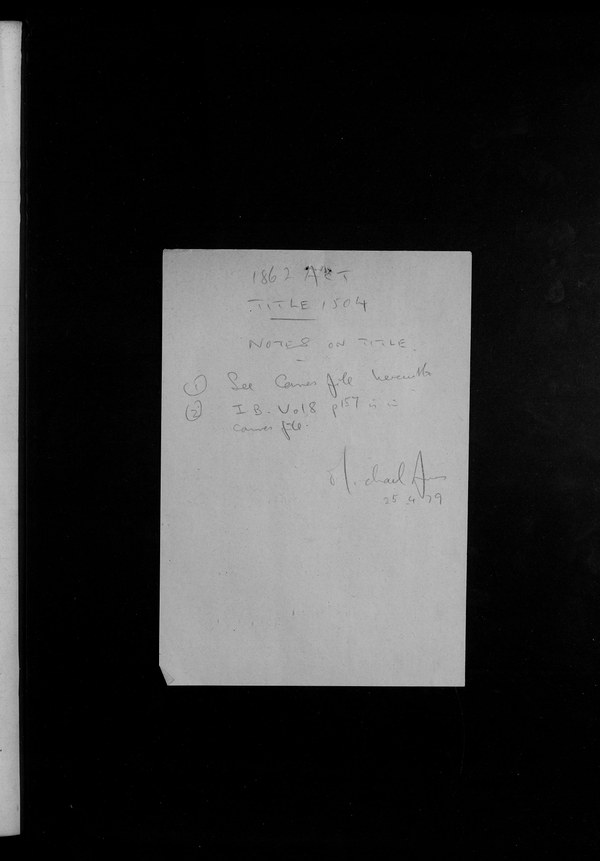 1862 ACT
TITLE 1504
NOTES ON TITLE
① See Comes file herewith
② I.B. Vol 8 p157 is in
comes file.
Michael
25.4.79